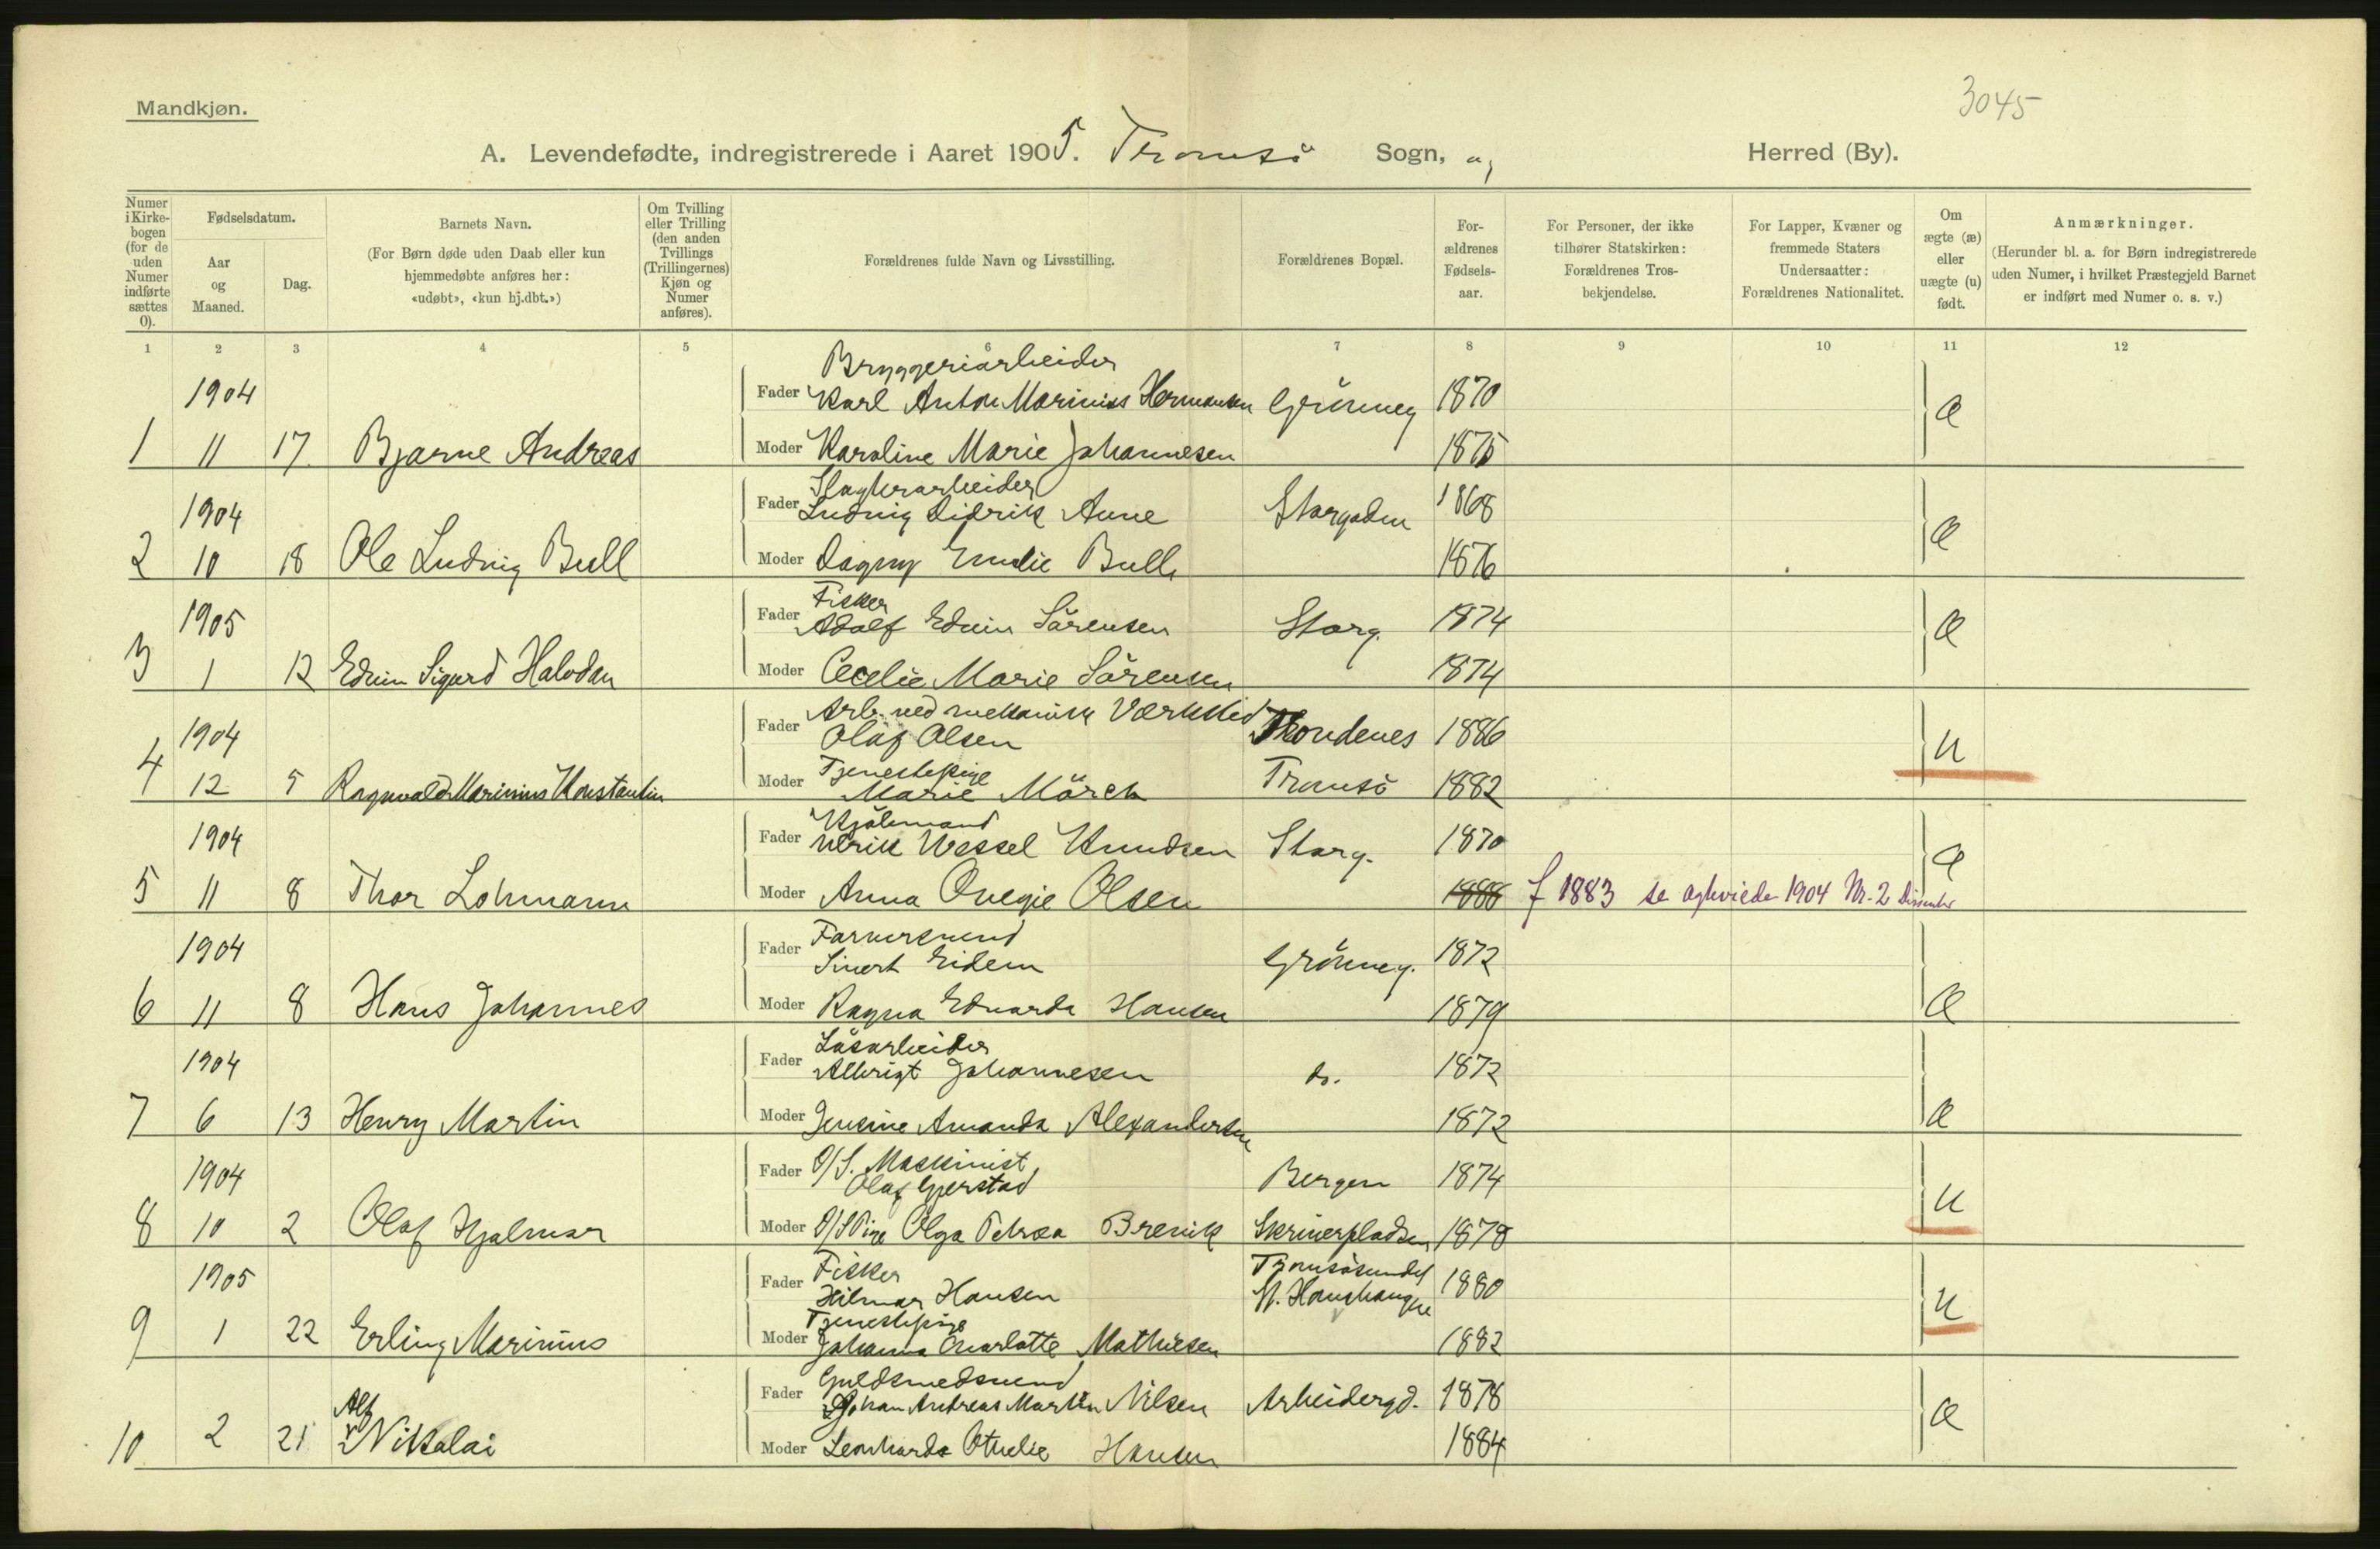 Mandkjøn.
3045
A. Levendefødte, indregistrerede i Aaret 1905. Tromsö Sogn, og Herred (By).
Numer i Kirke-bogen (for de uden Numer indførte sættes 0).
Fødselsdatum.
Aar og Maaned.
Dag.
Barnets Navn.
(For Børn døde uden Daab eller kun hjemmedøbte anføres her: «udøbt», «kun hj.dbt.»)
Om Tvilling eller Trilling (den anden Tvillings (Trillingernes) Kjøn og Numer anføres).
Forældrenes fulde Navn og Livsstilling.
Forældrenes Bopæl.
For-ældrenes Fødsels-aar.
For Personer, der ikke tilhører Statskirken: Forældrenes Tros-bekjendelse.
For Lapper, Kvæner og fremmede Staters Undersaatter: Forældrenes Nationalitet.
Om ægte (æ) eller uægte (u) født.
Anmærkninger.
(Herunder bl. a. for Børn indregistrerede uden Numer, i hvilket Præstegjeld Barnet er indført med Numer o. s. v.)
1 2 3 4 5 6 7 8 9 10 11 12
Bryggeriarbeider
1904 Fader Karl Anton Marinius Hermansen Grönneg 1870 æ
1 11 17 Bjarne Andreas Moder Karoline Marie Johannesen 1875
Slagterarbeider
1904 Fader Ludvig Didrik Aune Storgaden 1868 æ
2 10 18 Ole Ludvig Bull Moder Dagny Emilie Bull 1876
Fisker
1905 Fader Adolf Edvin Sörensen Storg. 1874 æ
3 1 12 Edvin Sigurd Halvdan Moder Cecelie Marie Sörensen 1874
Arb. ved mekanisk Værksted
1904 Fader Olaf Olsen Throndenes 1886 u
Tjenestepige
4 12 5 Ragnvald Marinius Konstantin Moder Marie Mörch Tromsö 1882
Kjölmand
1904 Fader Ulrik Wessel Knudsen Storg. 1870 æ
5 11 8 Thor Lohmann Moder Anna Ovegie Olsen 1886 f 1883 se ægteviede 1904 Nr. 2 Dissenter
Farversvend
1904 Fader Sivert Eidem Grönneg. 1872
6 11 8 Hans Johannes Moder Ragna Edvarda Hansen 1879 æ
Løsarbeider
1904 Fader Albrigt Johannesen do. 1872
7 6 13 Henry Martin Moder Jensine Amanda Alexandersen 1872 æ
O/S. Maskinist,
1904 Fader Olaf Gjerstad Bergen 1874 u
8 10 2 Olaf Hjalmar Moder O/S Pige Olga Petrea Brevik Skriverpladsen 1878
Fisker Tromsösundet
1905 Fader Hilmar Hansen St. Hanshaugen 1880 u
Tjenestepige
9 1 22 Erling Marinius Moder Johanna Charlotte Mathisen 1882
Guldsmedsvend
Fader Johan Andreas Martin Nilsen Arbeidergd. 1878 æ
Alf
10 2 21 Nikolai Moder Leonharda Othelie Hansen 1884